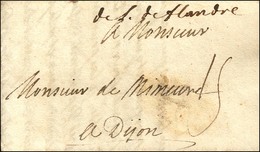 de f. de flandre
A Monsieur
Monsieur de Mimeure
A Dijon